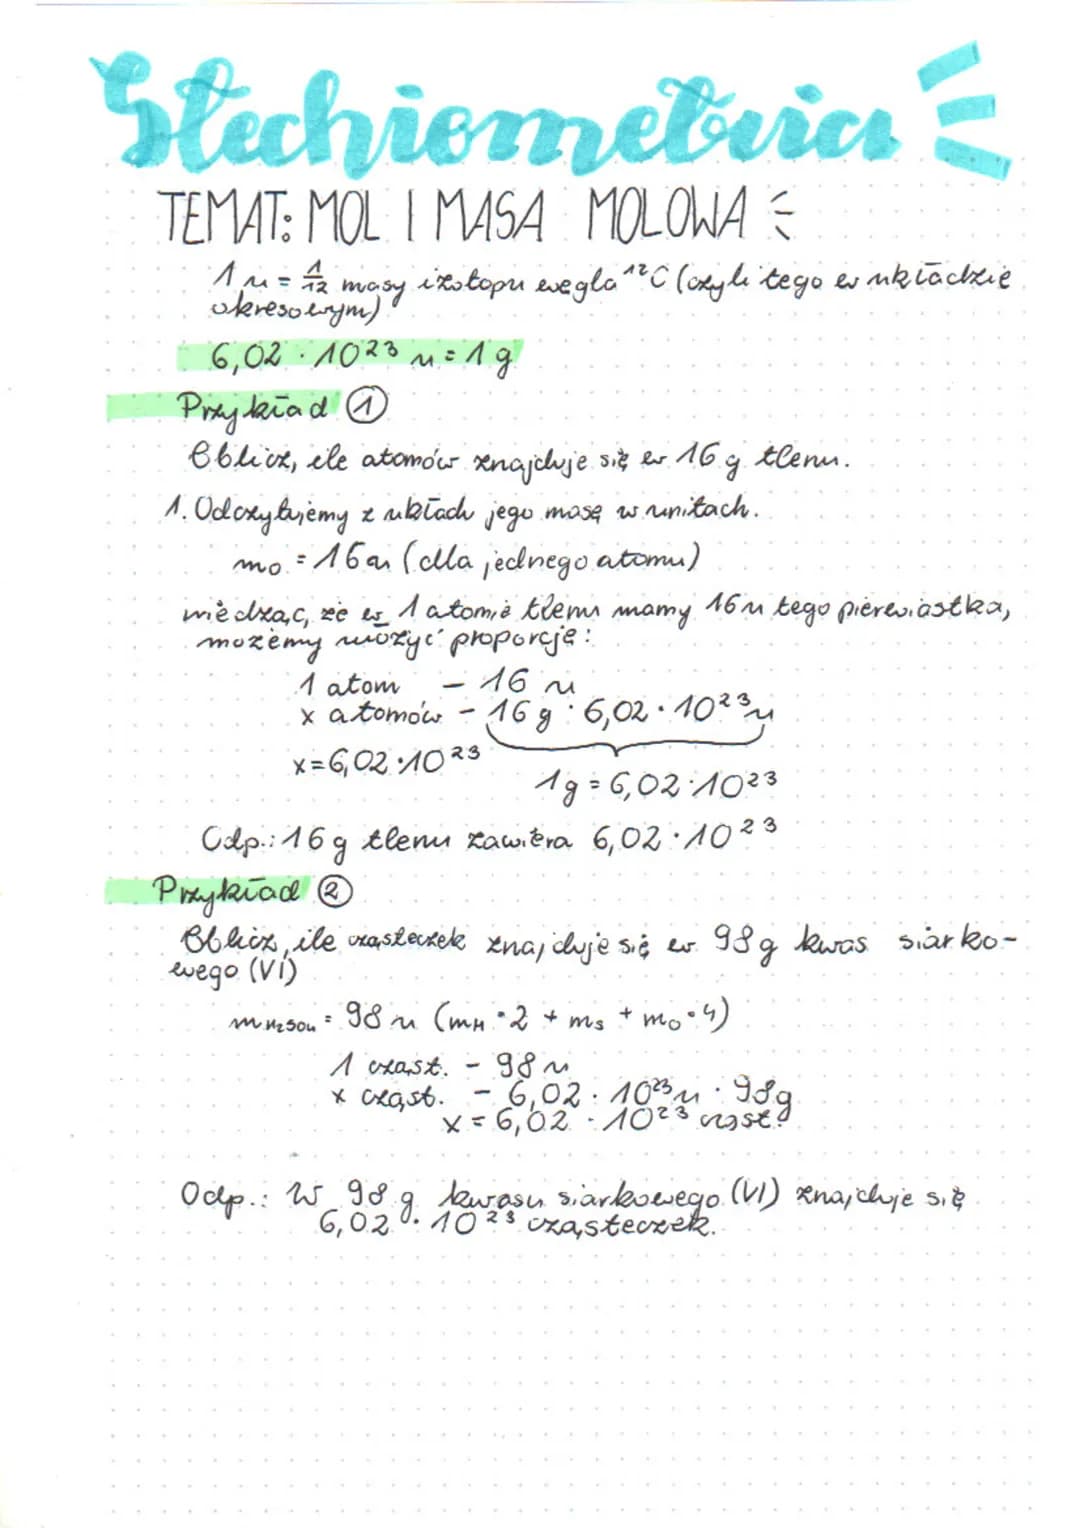 Stechiometria
TEMAT: MOL I MASA MOLOWA
1 u = 1/12 masy izotopu węgla ¹²C (czyli tego w układzie
okresowym)
6,02 · 10²³ u = 1 g
Przykład ①
Oblicz, ile atomów znajduje się w 16 g tlenu.
1. Odczytujemy z układu jego masę w unitach.
mo = 16 u (dla jednego atomu)
wiedząc, że w 1 atomie tlenu mamy 16 u tego pierwiastka,
możemy ułożyć proporcje:
1 atom – 16 u
x atomów – 16 g · 6,02 · 10²³ u
x = 6,02 · 10²³
1g = 6,02 · 10²³
Odp.: 16 g tlenu zawiera 6,02 · 10²³
Przykład ②
Oblicz, ile cząsteczek znajduje się w 98 g kwas siarko-
wego (VI)
mH2SO4 = 98 u (mH · 2 + ms + mo · 4)
1 cząst. – 98 u
x cząst. – 6,02 · 10²³ u · 98g
x = 6,02 · 10²³ cząst.
Odp.: W 98 g kwasu siarkowego (VI) znajduje się
6,02 · 10²³ cząsteczek.